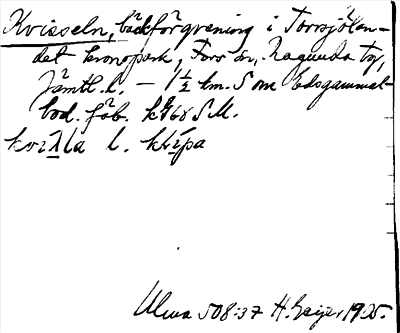 Kvisseln, bäckförgrening i Torrsjölan-
det kronopark, Fors sn, Ragunda tg,
Jämtl. l. — 1½ km. S om Edsgammal-
bod. fäb. kbl 68 S M.
l. kvípa
Ulma 508:37 H. Geijer 1925.